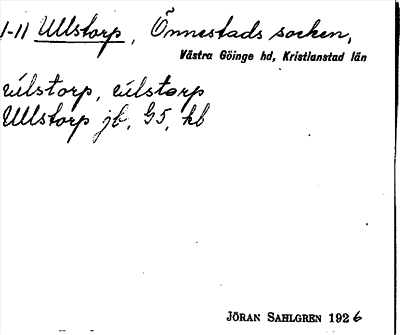 1-11 Ullstorp, Önnestads socken,
Västra Göinge hd, Kristianstad län
úlstorp, úlstorp
Ullstorp jb, G5, kb
JÖRAN SAHLGREN 1926